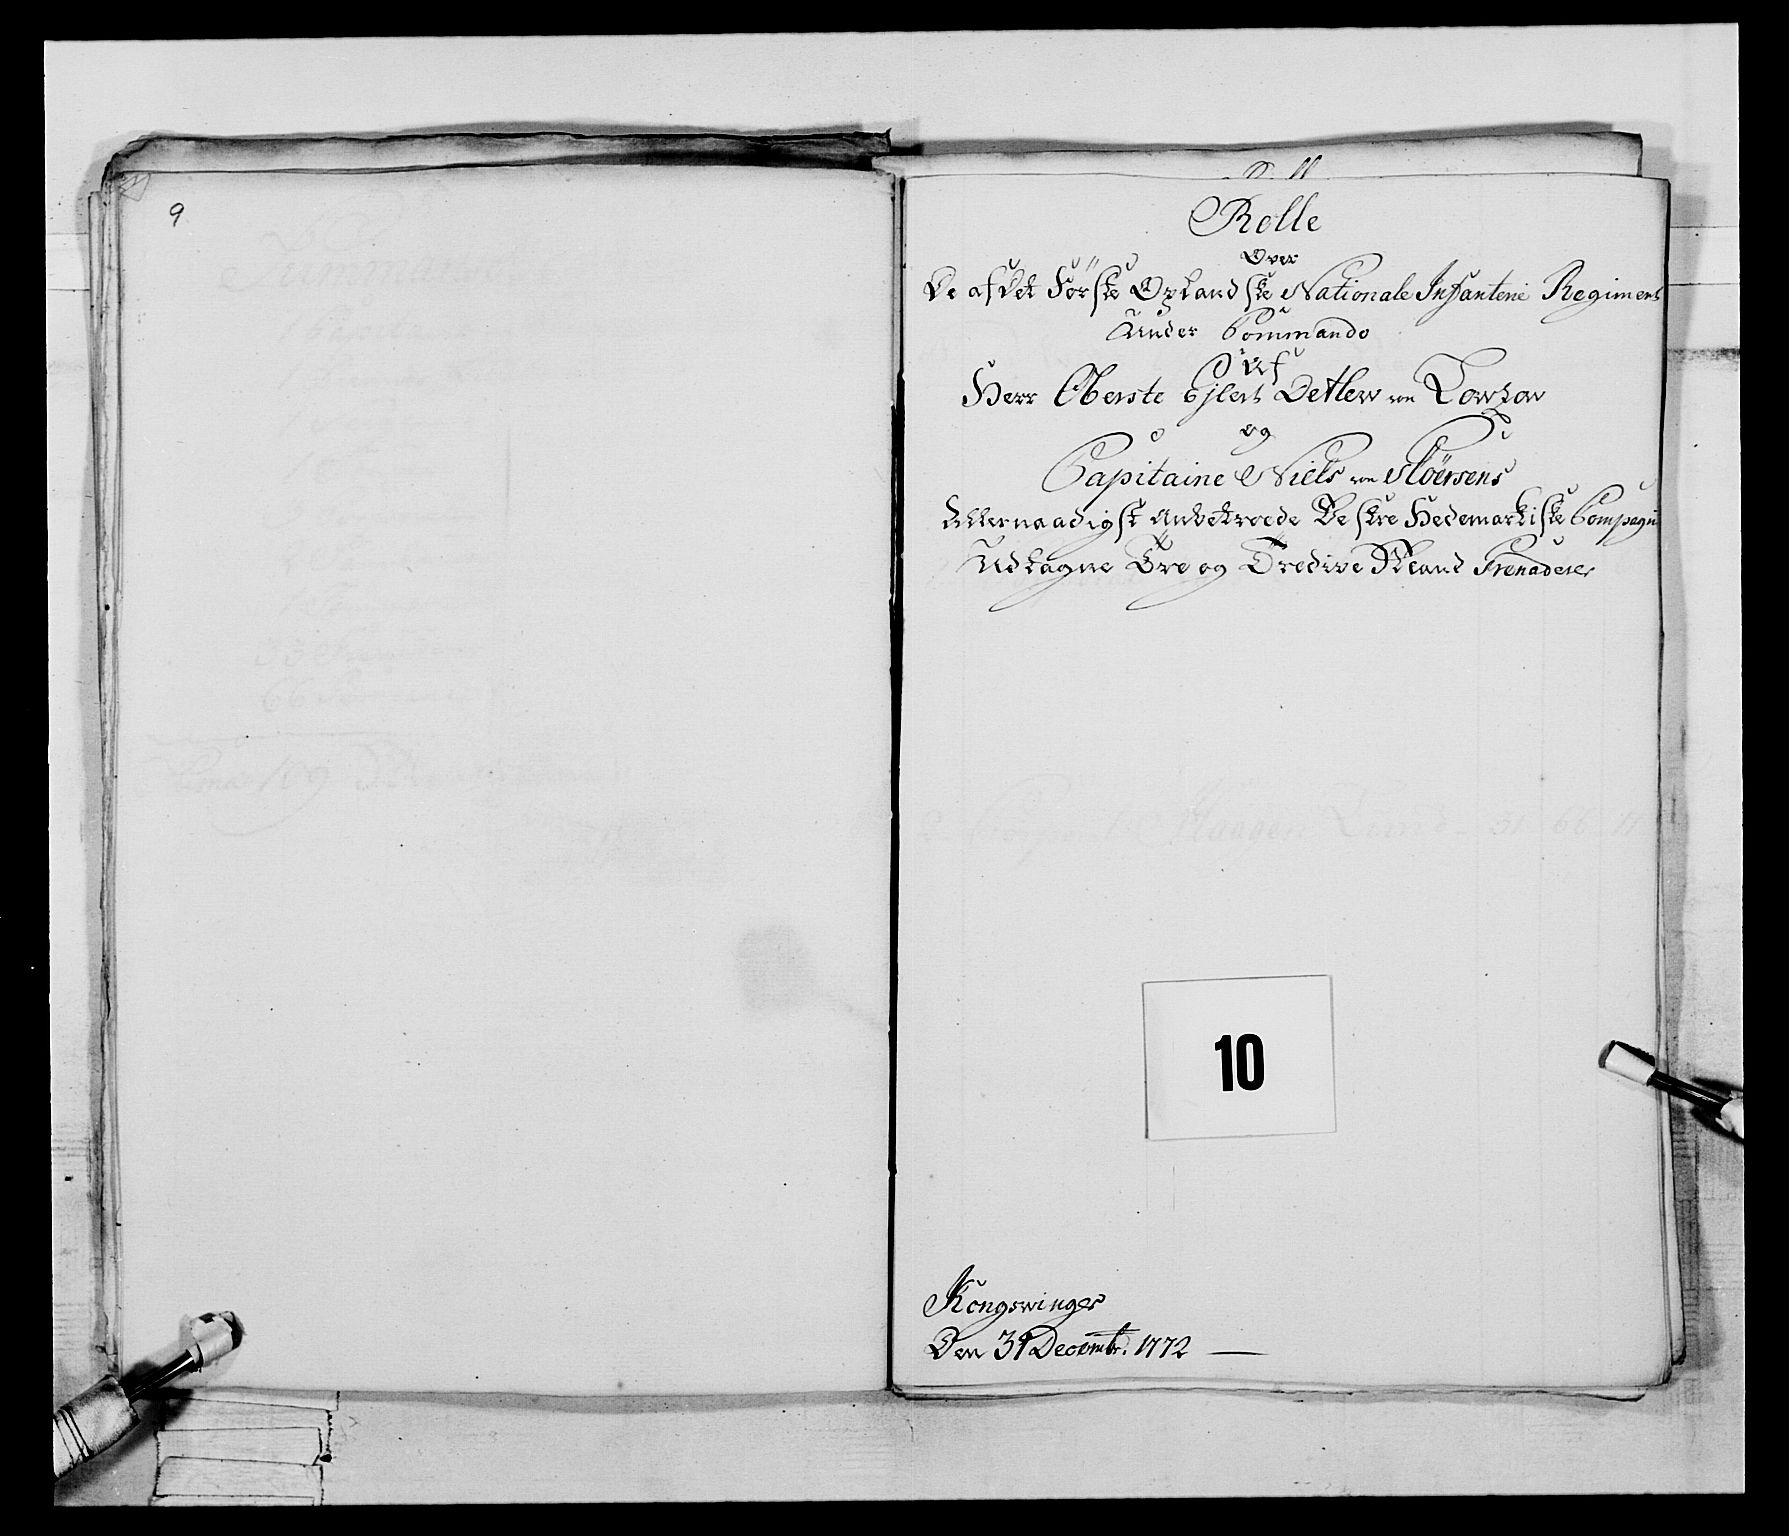 9
Rolle
Over
De af det Første Oplandske Nationale Infanterie Regiment
Under Commando
Af
Herr Oberste Ejlert Detlew von Lowzow
og
Capitaine Niels von
Allernaadigst Anbetroede Hedemarkiske Compagni
Udtagne Tre og Tredive Mand Grenaderer
10
Kongswinger
Den 31 Decembr. 1772